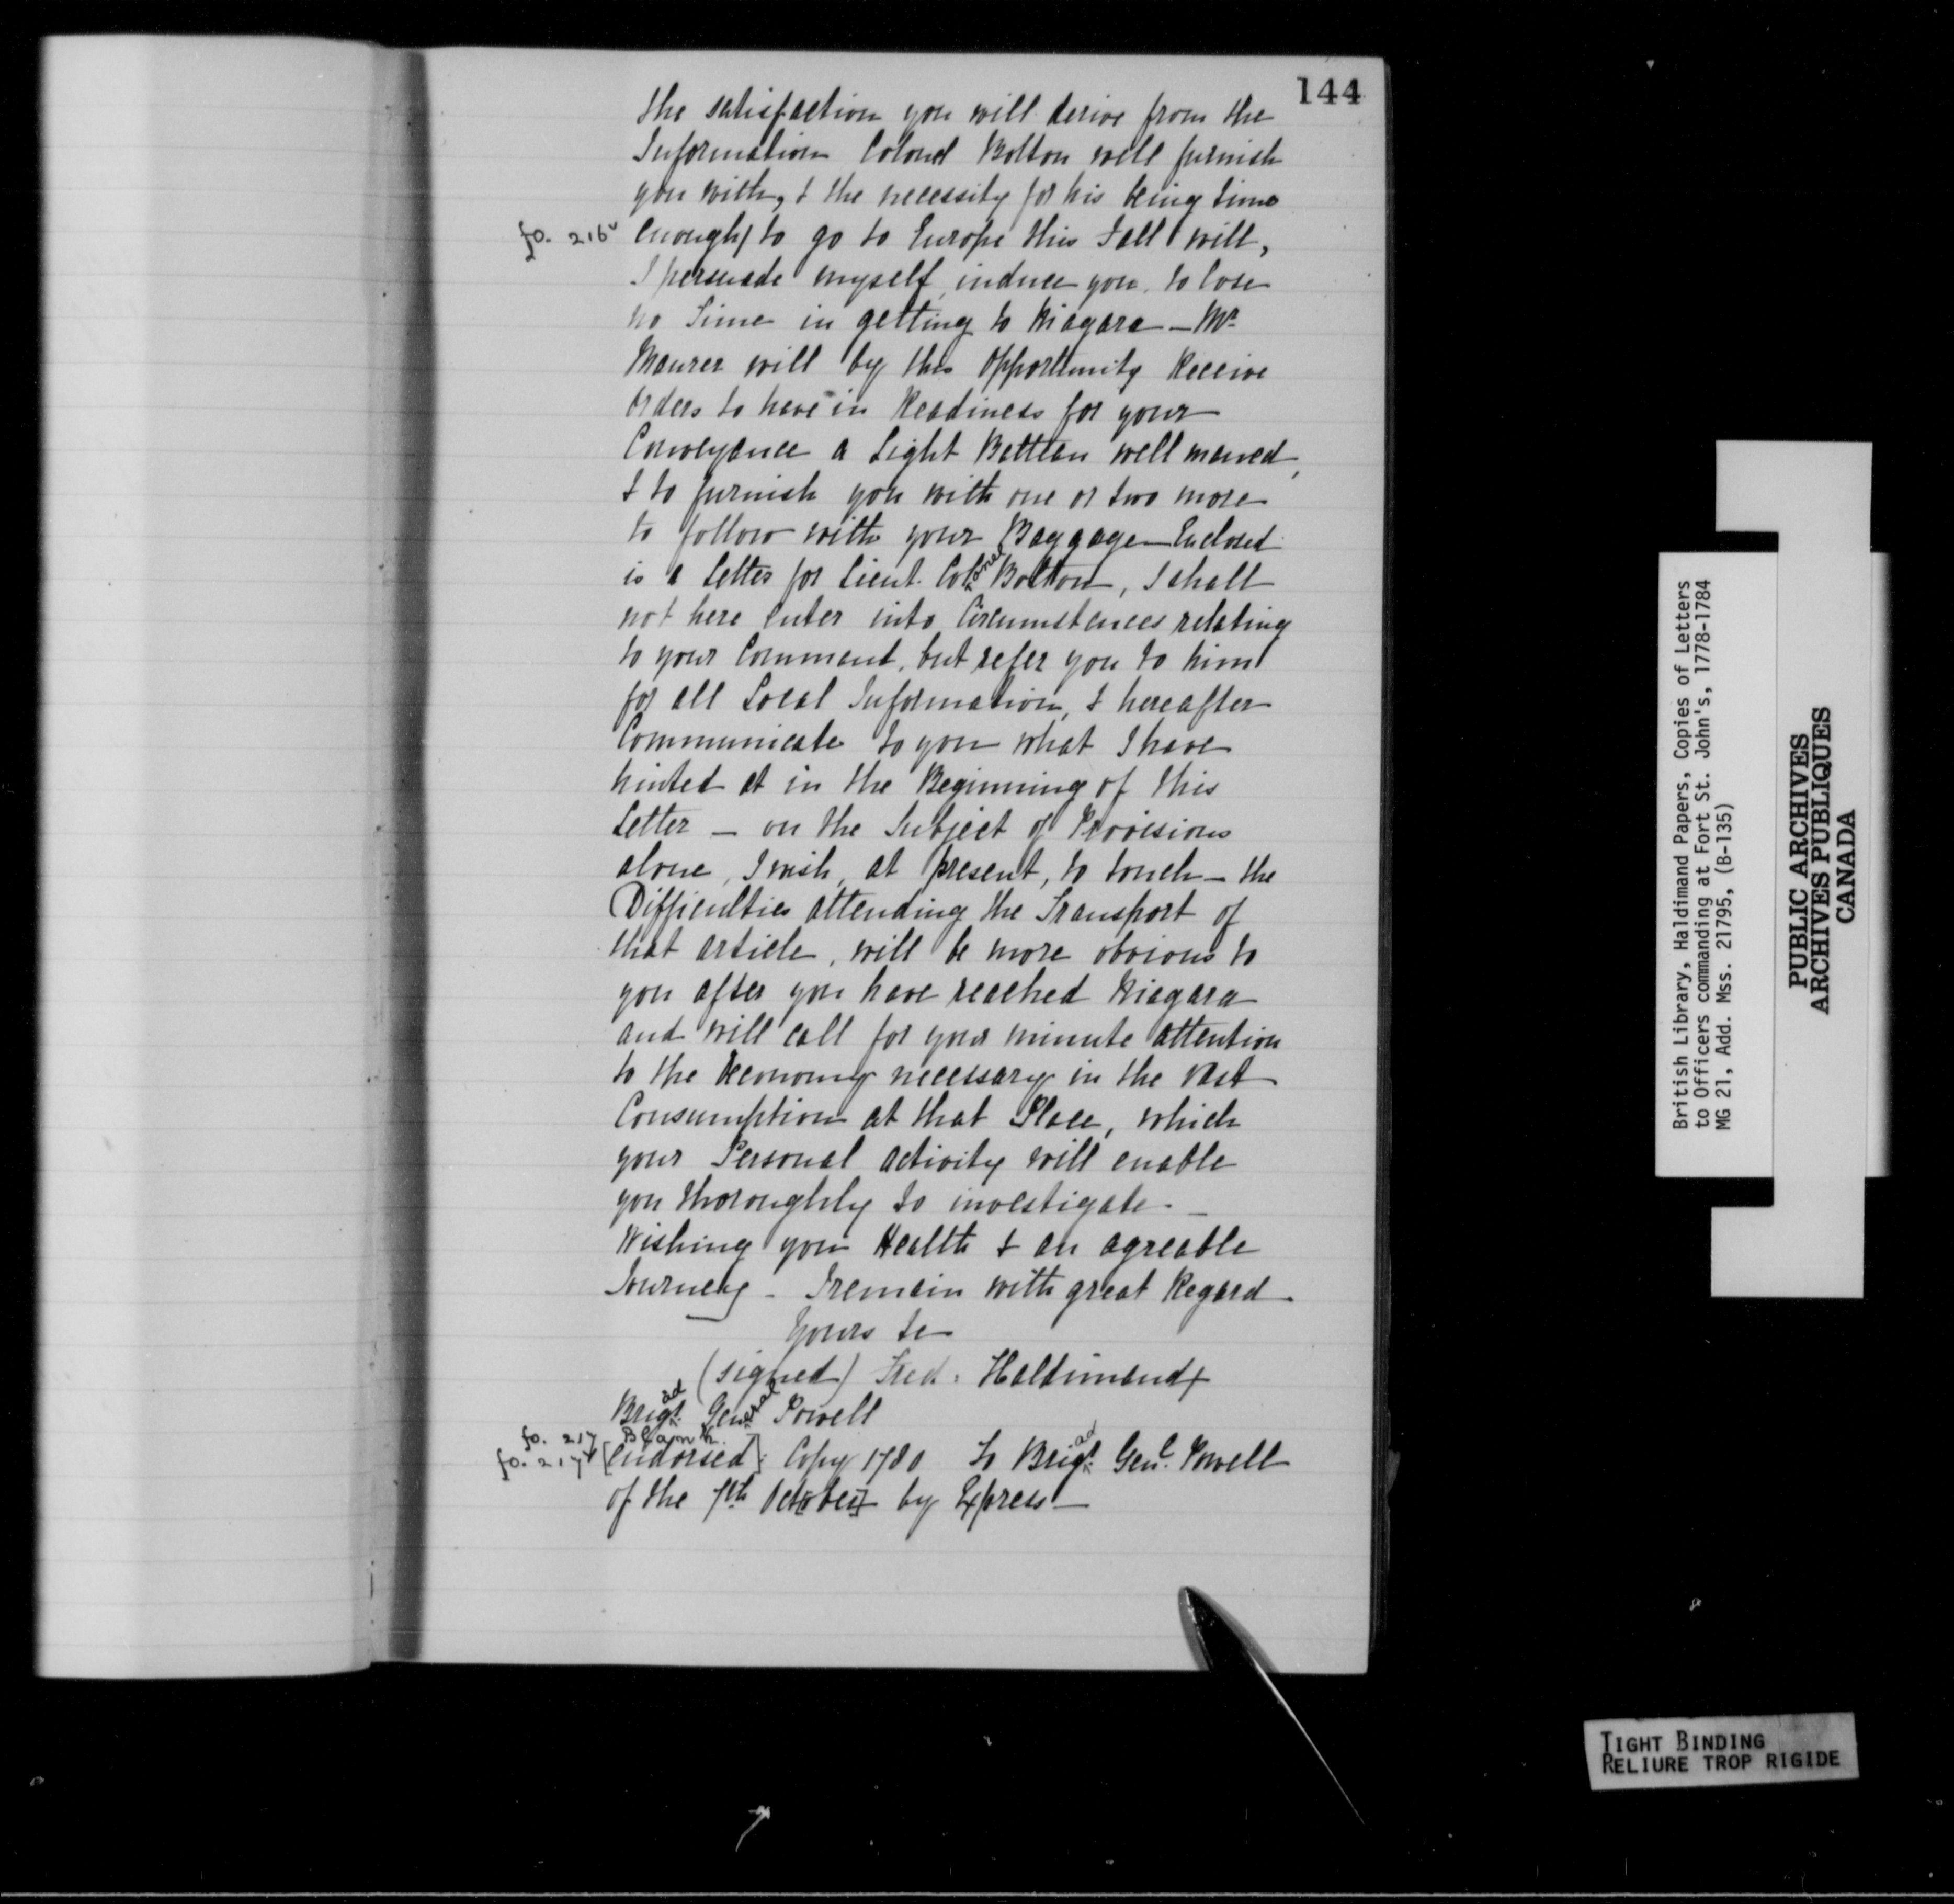 144
the satisfaction you will derive from the
Information Colonel Bolton will furnish
you with, & the necessity for his being time
fo. 216v enough/ to go to Europe this Fall will,
I persuade myself, induce you to lose
no Time in getting to Niagara — Mr
Maurer will by this Opportunity Receive
Orders to have in Readiness for your
Conveyance a Light Batteau well maned,
& to furnish you with one or two more
to follow with your Baggage — Enclosed
is a Letter for Lieut. Colonel Bolton, I shall
not here enter into Circumstances relating
to your Command, but refer you to him
for all Local Information, & hereafter
Communicate to you what I have
hinted at in the Beginning of this
Letter — on the Subject of Provisions
alone, I wish, at present, to touch — the
Difficulties attending the Transport of
that article, will be more obvious to
you after you have reached Niagara
and will call for your minute attention
to the Oeconomy necessary in the vast
Consumption at that Place, which
your Personal activity will enable
you thoroughly to investigate. —
Wishing you Health & an agreable
Journey — I remain with great Regard.
Yours &c
(signed) Fred: Haldimand
Brigad General Powell
fo. 217 Blank.
fo. 217v [endorsed]: Copy 1780 To Brigad Genl. Powell
of the 7th Oct[ober] by Express —
British Library, Haldimand Papers, Copies of Letters
to Officers commanding at Fort St. John's, 1778-1784
MG 21, Add. Mss. 21795, (B-135)
PUBLIC ARCHIVES
ARCHIVES PUBLIQUES
CANADA
TIGHT BINDING
RELIURE TROP RIGIDE